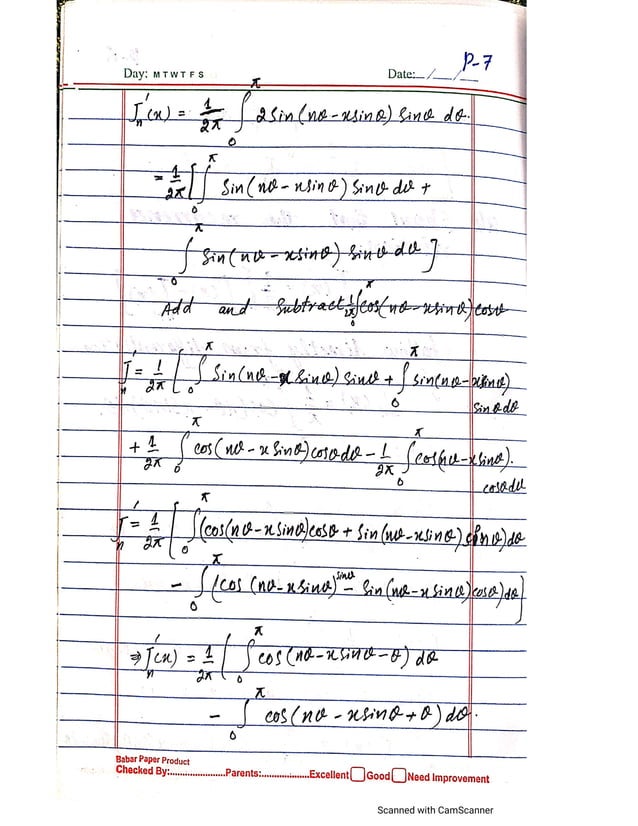 P-7
Day: M T W T F S Date:__/__/__
J'n(x) = 1/2π ∫₀^π 2Sin(nθ-xsinθ) Sinθ dθ.
= 1/2π [∫₀^π Sin(nθ-xsinθ) Sinθ dθ +
∫₀^π Sin(nθ-xsinθ) Sinθ dθ]
Add and Subtract 1/2π ∫₀^π cos(nθ-xsinθ) cosθ
J'n = 1/2π [∫₀^π Sin(nθ-x Sinθ) Sinθ + ∫₀^π sin(nθ-xsinθ)
sinθdθ
+ 1/2π ∫₀^π cos(nθ-x Sinθ) cosθdθ - 1/2π ∫₀^π cos(nθ-xSinθ).
cosθdθ
J'n = 1/2π [∫₀^π (cos(nθ-xSinθ)cosθ + Sin(nθ-xsinθ) sinθ)dθ
- ∫₀^π (cos(nθ-xSinθ) sinθ - Sin(nθ-xSinθ)cosθ)dθ]
⇒ J'n(x) = 1/2π [∫₀^π cos(nθ-xsinθ-θ) dθ
- ∫₀^π cos(nθ-xsinθ+θ)dθ.
Babar Paper Product
Checked By:.....................Parents:..................Excellent Good Need Improvement
Scanned with CamScanner